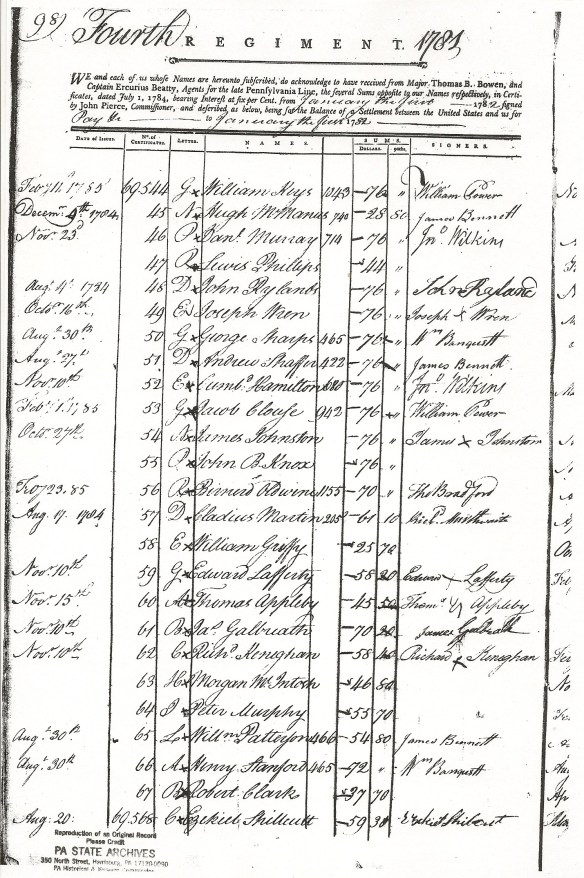 98) Fourth REGIMENT. 1781
WE and each of us whose Names are hereunto subscribed, do acknowledge to have received from Major Thomas B. Bowen, and
Captain Ercurius Beatty, Agents for the late Pennsylvania Line, the several Sums opposite to our Names respectively, in Certi-
ficates, dated July 1, 1784, bearing Interest at six per Cent. from January the first 1782, signed
by John Pierce, Commissioner, and described, as below, being for the Balance of a Settlement between the United States and us for
Pay &c to January the first 1782.
DATE OF ISSUE. No. of CERTIFICATES. LETTER. NAMES. SUMS. DOLLARS. 90ths. SIGNERS.
Feby 14 1785 69544 G x William Keys 1043 76 " William Power
Decemr 9th 1784 45 N x Hugh McManus 740 28 80 James Bennett
Novr 23d 46 P x Danl Murray 714 76 " Jno Wilkins
47 R x Lewis Phillips 44 "
Augt 4th 1784 48 D x John Rylands 76 " John Ryland
Octor 16th 49 E x Joseph Wren 76 " Joseph x Wren
Augt 30th 50 G x George Sharps 465 76 " Wm Banquett
Augt 27th 51 D x Andrew Shaffer 422 76 James Bennett
Novr 10th 52 E x Cumbd Hamilton 76 " Jno Wilkins
Feby 1 1785 53 G x Jacob Clouse 942 76 " William Power
Octor 27th 54 N x James Johnston 76 " James x Johnston
55 P x John B. Knox 76 "
23.85 56 R x 1155 70 " Tho Bradford
Aug 17. 1784 57 D x Cladius Martin 205 61 10
58 E x William Griffy 25 72
Novr 10th 59 G x Edward Lafferty 58 20 Edward x Lafferty
Novr 15th 60 A x Thomas Appleby 45 50 Thoms Appleby
Novr 10th 61 B x Jas Galbreath 70 20 James Galbrath
Novr 10th 62 C x Richd Heneghan 58 40 Richard x Heneghan
63 H x Morgan McIntosh 46 80
64 I x Peter Murphy 55 70 "
Augt 30th 65 L x Willm Patterson 466 54 80 James Bennett
Augt 30th 66 A x Henry Stanford 465 72 " Wm Banquett
67 B x Robert Clark 37 70
Aug 20. 69568 C x Ezekiel Shillcutt 59 30
Reproduction of an Original Record
Please Credit
PA STATE ARCHIVES
350 North Street, Harrisburg, PA 17120-0090
PA Historical & Museum Commission